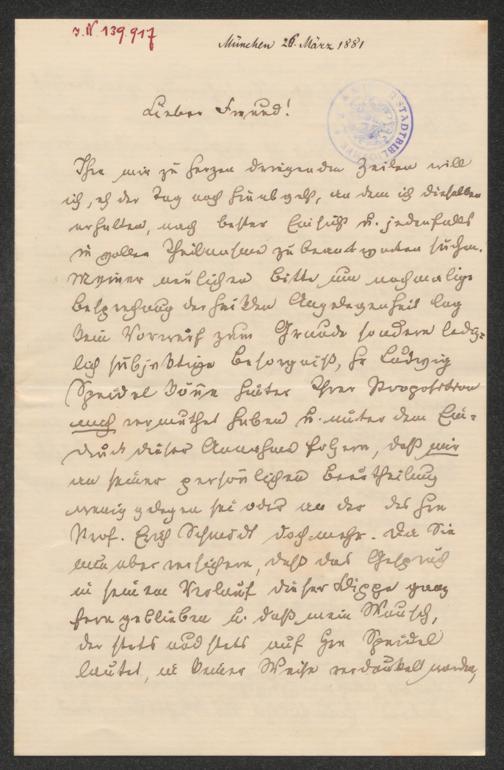 J. N 139 917
München 26. März 1881
Lieber Freund!
Ihre mir zu Herzen dringenden Zeilen will
ich, eh der Tag noch hinab geht, an dem ich dieselben
erhalten, nach bester Einsicht u. jedenfalls
in voller Theilnahme zu beantworten suchen.
Meiner neulichen Bitte um nochmalige
Besprechung der heiklen Angelegenheit lag
kein Vorwurf zum Grunde sondern ledig-
lich subjektive Besorgniß, Hr Ludwig
Speidel könne hinter Ihrer Proposition
mich vermuthet haben u. unter dem Ein-
druck dieser Annahme folgern, daß mir
an seiner persönlichen Beurtheilung
wenig gelegen sei oder an der des Hrn
Prof. Erich Schmidt doch mehr. Da Sie
nun aber versichern, daß das Gespräch
in seinem Verlauf dieser Klippe ganz
fern geblieben u. daß mein Wunsch,
der stets und stets auf Hrn Speidel
lautet, in keiner Weise verdunkelt worden,
STADTBIBLIOTHEK